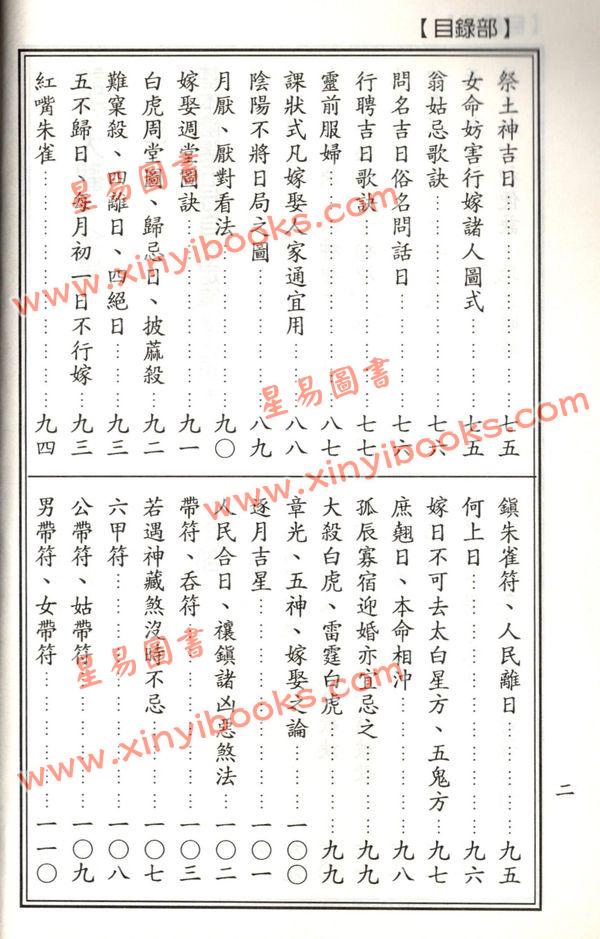 【目錄部】
祭土神吉日……七五
女命妨害行嫁諸人圖式……七五
翁姑忌歌訣……七六
問名吉日俗名問話日……七六
行聘吉日歌訣……七七
靈前服婦……八七
課狀式凡嫁娶人家通宜用……八八
陰陽不將日局之圖……八九
月厭、厭對看法……九〇
嫁娶週堂圖訣……九一
白虎周堂圖、歸忌日、披蔴殺……九二
難窠殺、四離日、四絕日……九三
五不歸日、每月初一日不行嫁……九三
紅嘴朱雀……九四
鎮朱雀符、人民離日……九五
何上日……九六
嫁日不可去太白星方、五鬼方……九七
庶翹日、本命相沖……九八
孤辰寡宿迎婚亦宜忌之……九九
大殺白虎、雷霆白虎……九九
章光、五神、嫁娶之論……一〇〇
逐月吉星……一〇一
人民合日、禳鎮諸凶惡煞法……一〇二
帶符、吞符……一〇三
若遇神藏煞沒時不忌……一〇七
六甲符……一〇八
公帶符、姑帶符……一〇九
男帶符、女帶符……一一〇
二
星易圖書
www.xinyibooks.com
星易圖書
www.xinyibooks.com
星易圖書
www.xinyibooks.com